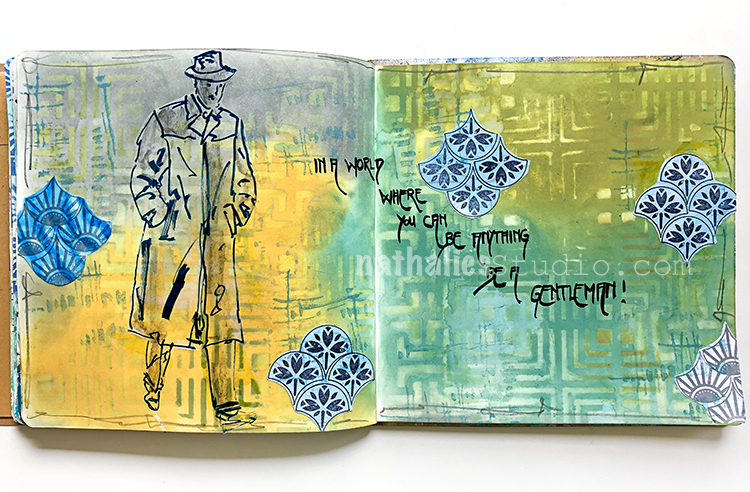 IN A WORLD
WHERE
YOU CAN
BE ANYTHING
BE A
GENTLEMAN!
nathaliesstudio.com